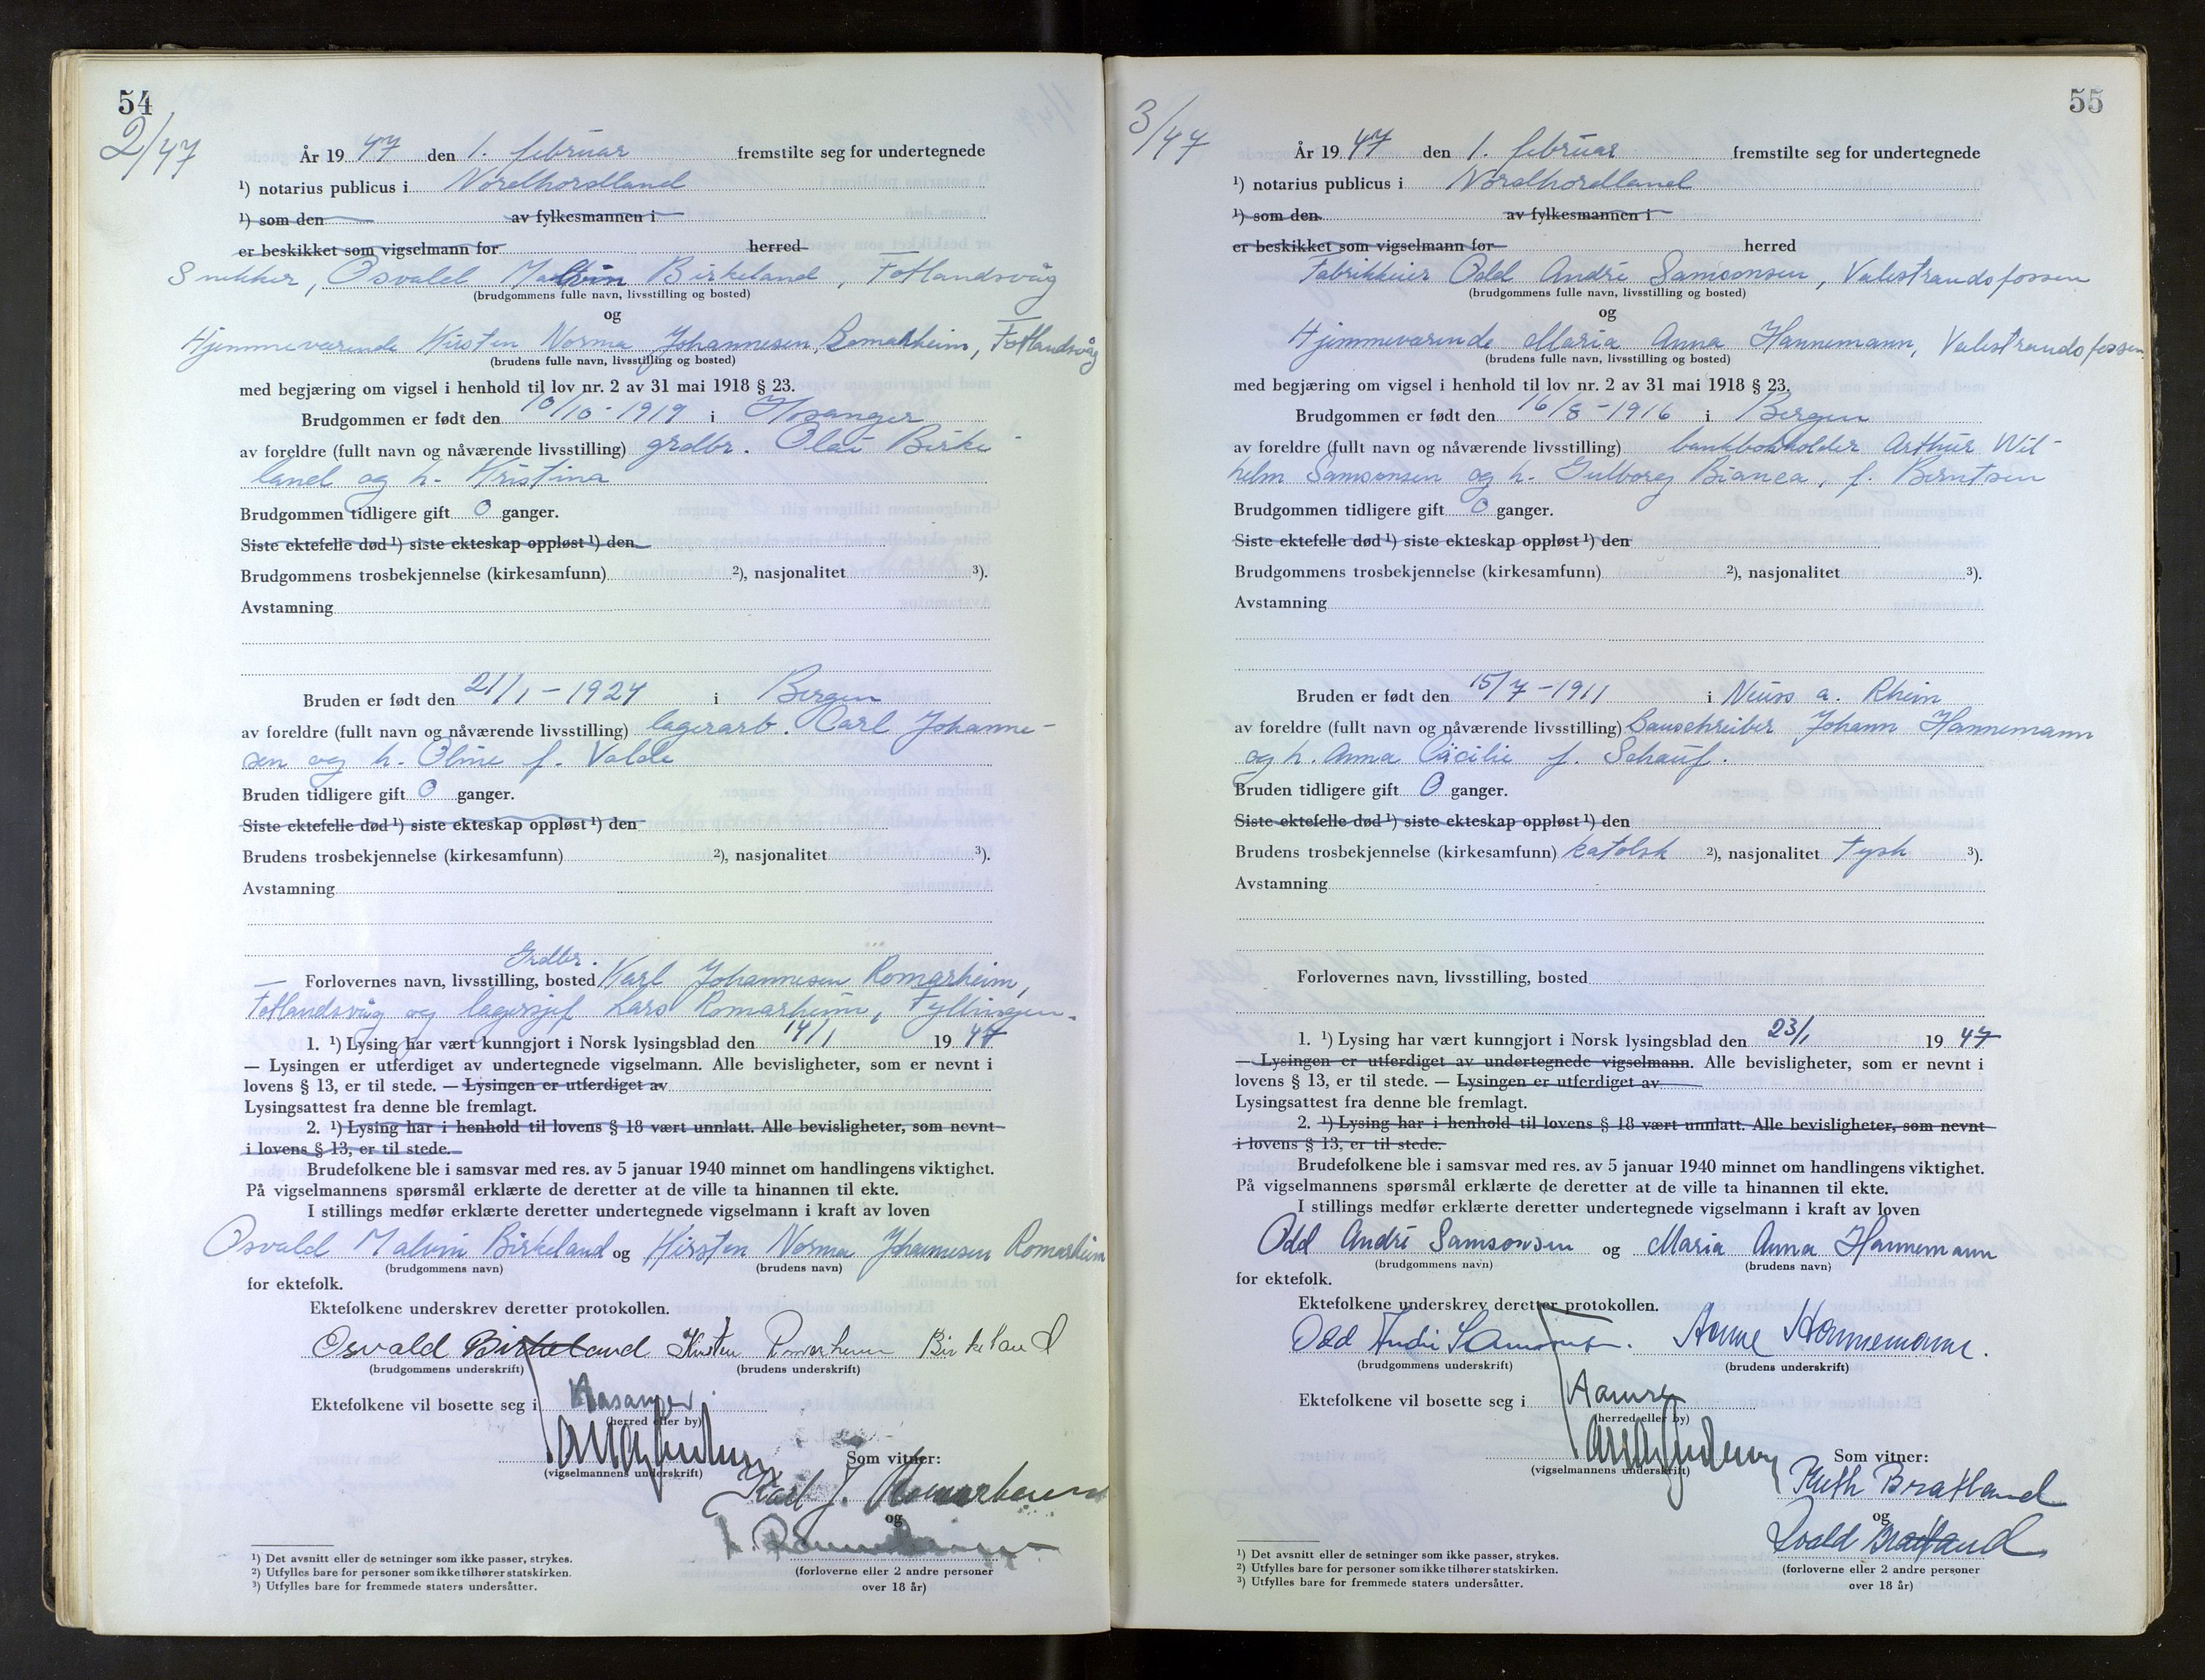 54
2/47
År 19 47 den 1. februar fremstilte seg for undertegnede
¹) notarius publicus i Nordhordland
¹) som den av fylkesmannen i
er beskikket som vigselmann for herred
Snikker, Osvald Malvin Birkeland, Fotlandsvåg
(brudgommens fulle navn, livsstilling og bosted)
og
Hjemmeværende Kirsten Norma Johannesen, Romarheim, Fotlandsvåg
(brudens fulle navn, livsstilling og bosted)
med begjæring om vigsel i henhold til lov nr. 2 av 31 mai 1918 § 23.
Brudgommen er født den 10/10-1919 i Hosanger
av foreldre (fullt navn og nåværende livsstilling) grdbr. Olai Birke-
land og h. Kristina
Brudgommen tidligere gift 0 ganger.
Siste ektefelle død ¹) siste ekteskap oppløst ¹) den
Brudgommens trosbekjennelse (kirkesamfunn) ²), nasjonalitet ³).
Avstamning
Bruden er født den 21/1-1924 i Bergen
av foreldre (fullt navn og nåværende livsstilling) lagerarb. Carl Johanne-
sen og h. Oline f. Valde
Bruden tidligere gift 0 ganger.
Siste ektefelle død ¹) siste ekteskap oppløst ¹) den
Brudens trosbekjennelse (kirkesamfunn) ²), nasjonalitet ³).
Avstamning
Grdbr.
Forlovernes navn, livsstilling, bosted Karl Johannesen Romarheim,
Fotlandsvåg og lagersjef Lars Romarheim, Fyllingen.
1. ¹) Lysing har vært kunngjort i Norsk lysingsblad den 14/1 19 47
— Lysingen er utferdiget av undertegnede vigselmann. Alle bevisligheter, som er nevnt i
lovens § 13, er til stede. — Lysingen er utferdiget av
Lysingsattest fra denne ble fremlagt.
2. ¹) Lysing har i henhold til lovens § 18 vært unnlatt. Alle bevisligheter, som nevnt
i lovens § 13, er til stede.
Brudefolkene ble i samsvar med res. av 5 januar 1940 minnet om handlingens viktighet.
På vigselmannens spørsmål erklærte de deretter at de ville ta hinannen til ekte.
I stillings medfør erklærte deretter undertegnede vigselmann i kraft av loven
Osvald Malvin Birkeland og Kirsten Norma Johannesen Romarheim
(brudgommens navn) (brudens navn)
for ektefolk.
Ektefolkene underskrev deretter protokollen.
Osvald Birkeland Kirsten Romarheim Birkeland
(brudgommens underskrift) (brudens underskrift)
Ektefolkene vil bosette seg i Hosanger
(herred eller by)
(vigselmannens underskrift)
Som vitner:
Karl J. Romarheim
og
L. Romarheim
(forloverne eller 2 andre personer
over 18 år)
¹) Det avsnitt eller de setninger som ikke passer, strykes.
²) Utfylles bare for personer som ikke tilhører statskirken.
³) Utfylles bare for fremmede staters undersåtter.
55
3/47
År 19 47 den 1. februar fremstilte seg for undertegnede
¹) notarius publicus i Nordhordland
¹) som den av fylkesmannen i
er beskikket som vigselmann for herred
Fabrikkeier Odd André Samsonsen, Valestrandsfossen
(brudgommens fulle navn, livsstilling og bosted)
og
Hjemmeværende Maria Anna Hannemann, Valestrandsfossen
(brudens fulle navn, livsstilling og bosted)
med begjæring om vigsel i henhold til lov nr. 2 av 31 mai 1918 § 23.
Brudgommen er født den 16/8-1916 i Bergen
av foreldre (fullt navn og nåværende livsstilling) bankbokholder Arthur Wil-
helm Samsonsen og h. Gulborg Bianca, f. Berntsen
Brudgommen tidligere gift 0 ganger.
Siste ektefelle død ¹) siste ekteskap oppløst ¹) den
Brudgommens trosbekjennelse (kirkesamfunn) ²), nasjonalitet ³).
Avstamning
Bruden er født den 15/7-1911 i Neuss a. Rhein
av foreldre (fullt navn og nåværende livsstilling) Bauschreiber Johann Hannemann
og h. Anna Cäcilie f. Schauf.
Bruden tidligere gift 0 ganger.
Siste ektefelle død ¹) siste ekteskap oppløst ¹) den
Brudens trosbekjennelse (kirkesamfunn) katolsk ²), nasjonalitet tysk ³).
Avstamning
Forlovernes navn, livsstilling, bosted
1. ¹) Lysing har vært kunngjort i Norsk lysingsblad den 23/1 19 47
— Lysingen er utferdiget av undertegnede vigselmann. Alle bevisligheter, som er nevnt i
lovens § 13, er til stede. — Lysingen er utferdiget av
Lysingsattest fra denne ble fremlagt.
2. ¹) Lysing har i henhold til lovens § 18 vært unnlatt. Alle bevisligheter, som nevnt
i lovens § 13, er til stede.
Brudefolkene ble i samsvar med res. av 5 januar 1940 minnet om handlingens viktighet.
På vigselmannens spørsmål erklærte de deretter at de ville ta hinannen til ekte.
I stillings medfør erklærte deretter undertegnede vigselmann i kraft av loven
Odd André Samsonsen og Maria Anna Hannemann
(brudgommens navn) (brudens navn)
for ektefolk.
Ektefolkene underskrev deretter protokollen.
Odd André Samsonsen. Anne Hannemann.
(brudgommens underskrift) (brudens underskrift)
Ektefolkene vil bosette seg i Hamre
(herred eller by)
(vigselmannens underskrift)
Som vitner:
Ruth Bratland
og
Bratland
(forloverne eller 2 andre personer
over 18 år)
¹) Det avsnitt eller de setninger som ikke passer, strykes.
²) Utfylles bare for personer som ikke tilhører statskirken.
³) Utfylles bare for fremmede staters undersåtter.